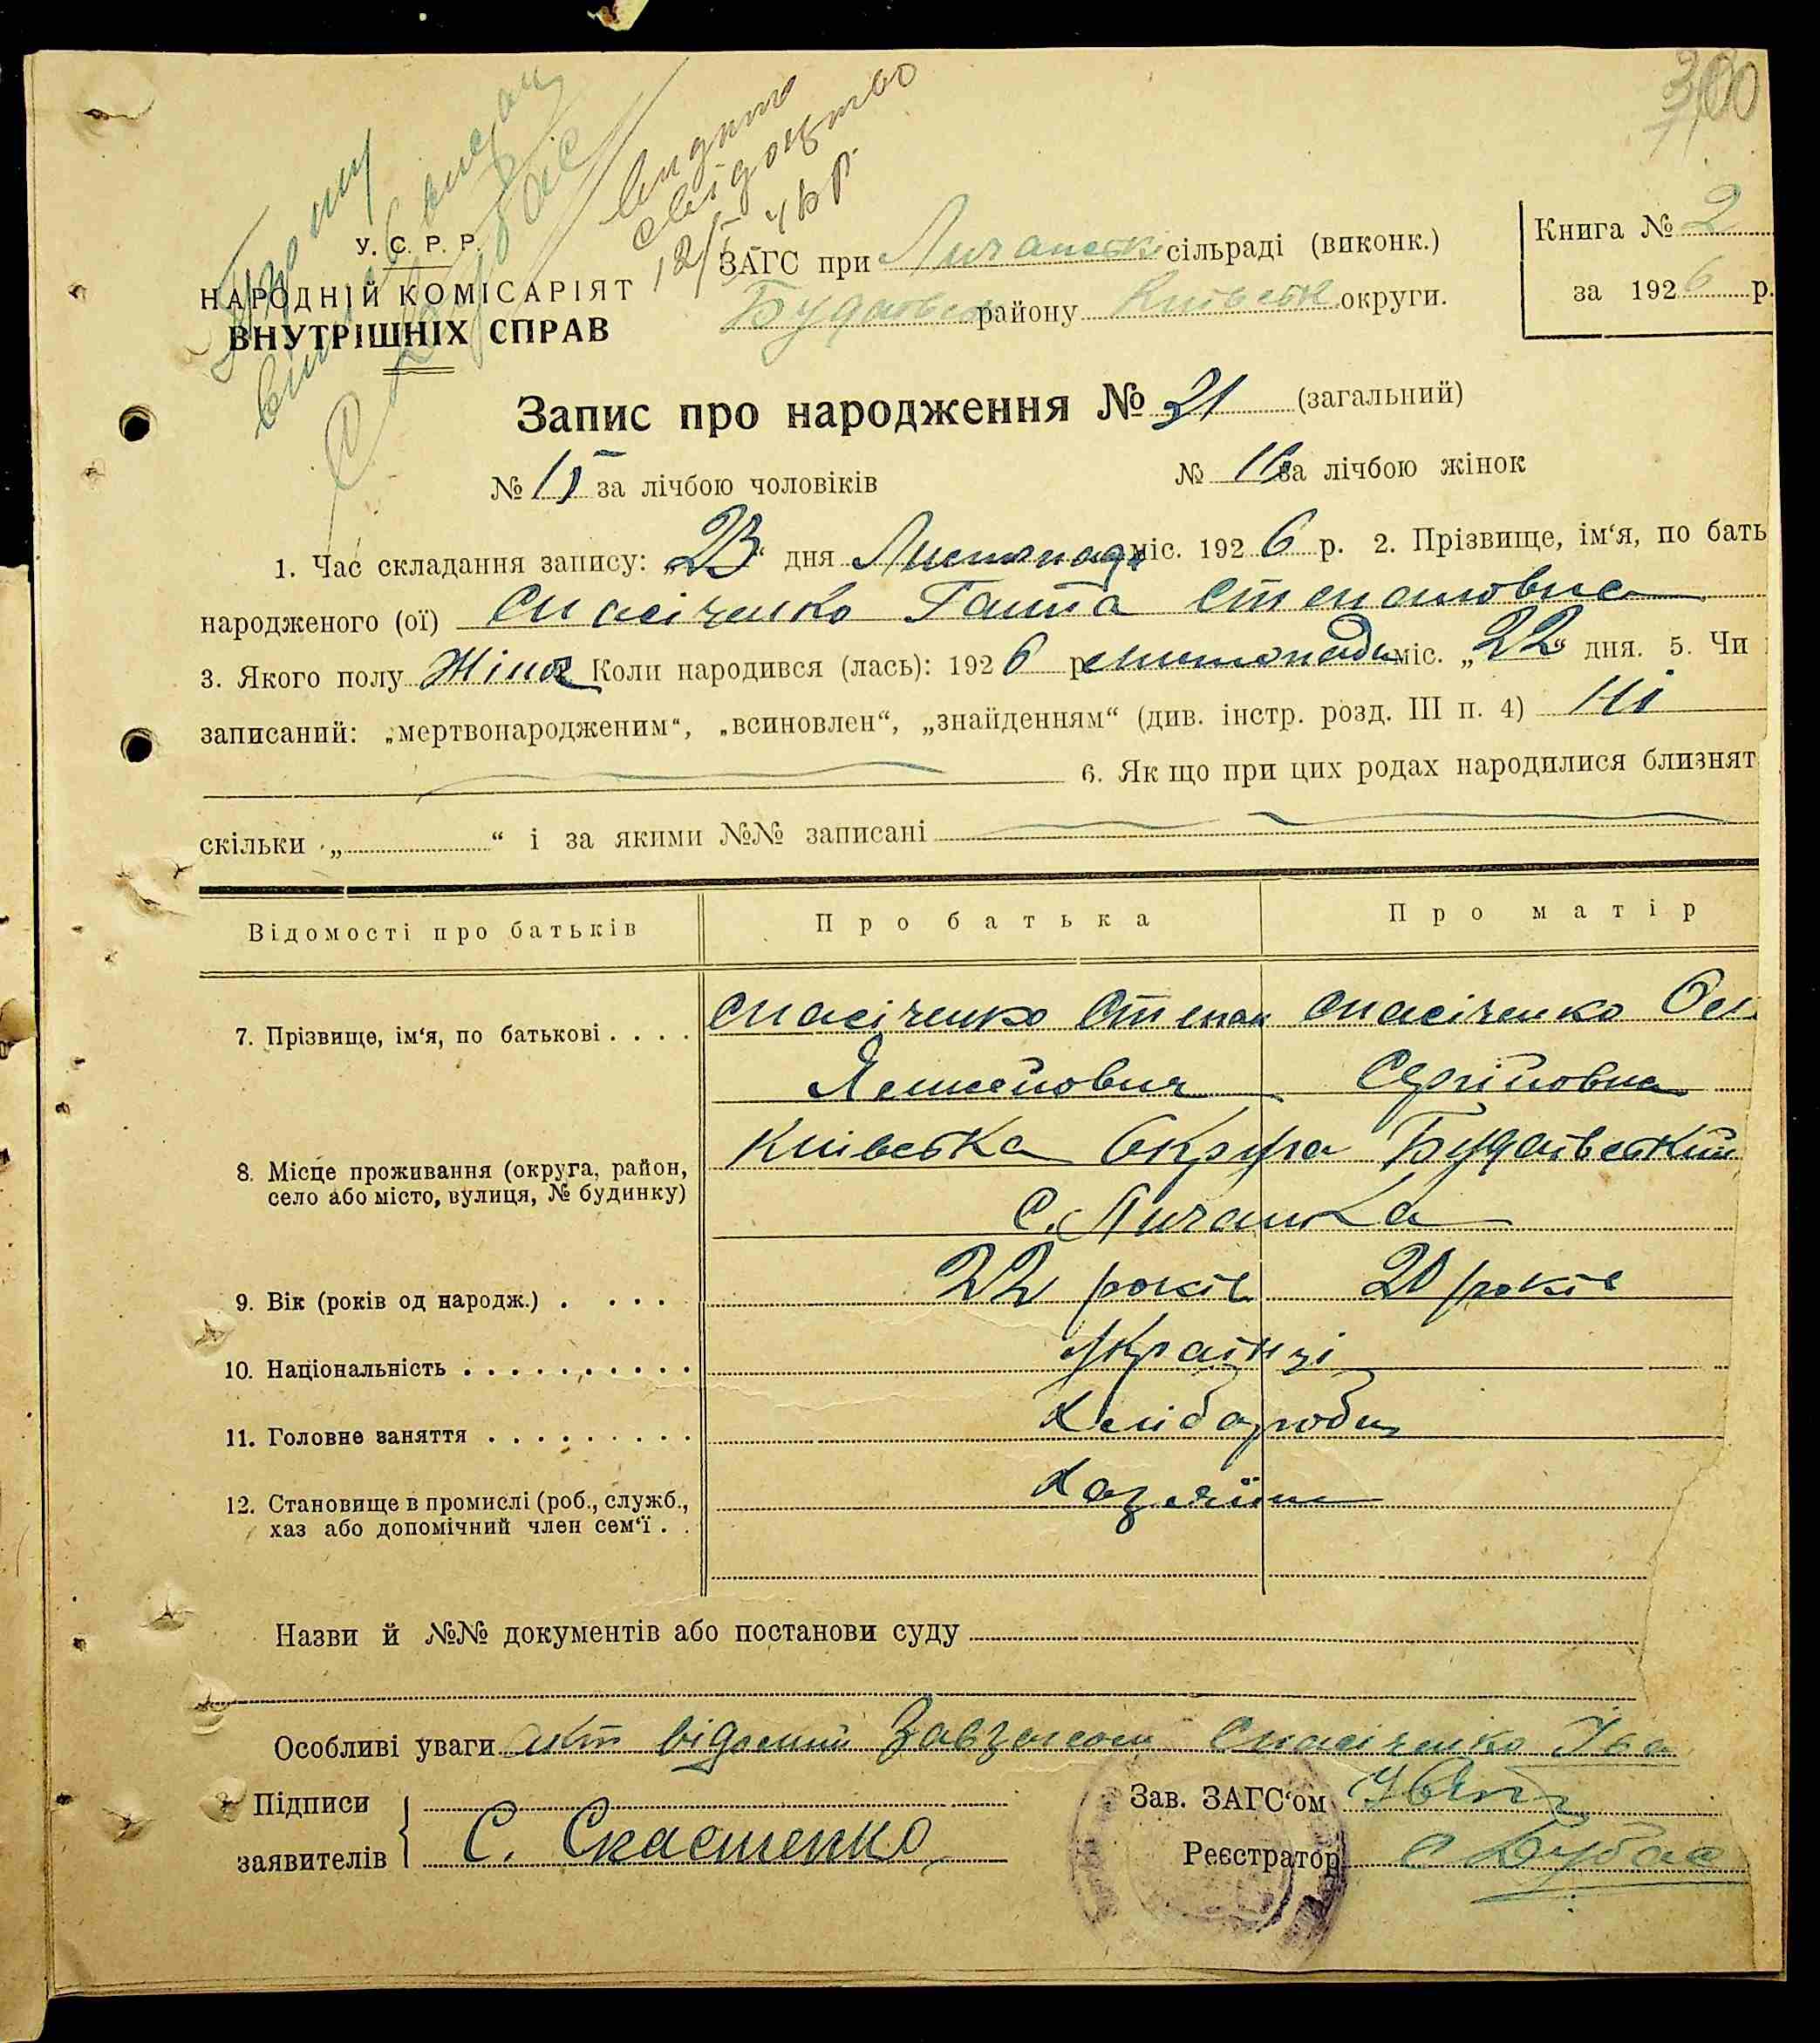 300
видано
свідоцтво
У. С. Р. Р.
НАРОДНІЙ КОМІСАРІЯТ
ВНУТРІШНІХ СПРАВ
ЗАГС при Личанськ сільраді (виконк.)
району Київськ округи.
Книга № 2
за 1926 р.
Запис про народження № 31 (загальний)
№ 15 за лічбою чоловіків
№ 16 за лічбою жінок
1. Час складання запису: „23“ дня Листопада міс. 1926 р. 2. Прізвище, ім‘я, по бать
народженого (ої) Спасіченко Ганна Степановна
3. Якого полу Жіноч Коли народився (лась): 1926 р. листопада міс. „22“ дня. 5. Чи
записаний: „мертвонародженим“, „всиновлен“, „знайденням“ (див. інстр. розд. III п. 4) Ні
6. Як що при цих родах народилися близнят
скільки „ “ і за якими №№ записані
Відомості про батьків
Про батька
Про матір
7. Прізвище, ім‘я, по батькові
Спасіченко Степан
Спасіченко
Сергіиовна
8. Місце проживання (округа, район,
село або місто, вулиця, № будинку)
Київська Округа Будаівський
С. Личанка
9. Вік (років од народж.)
22 років
20 років
10. Національність
Украінці
11. Головне заняття
Хлібороби
12. Становище в промислі (роб., служб.,
хаз або допомічний член сем‘ї
Хазяїни
Назви й №№ документів або постанови суду
Особливі уваги Акт Спасіченко Іва
Підписи
заявителів
С. Спасіенко
Зав. ЗАГС‘ом
Реєстратор